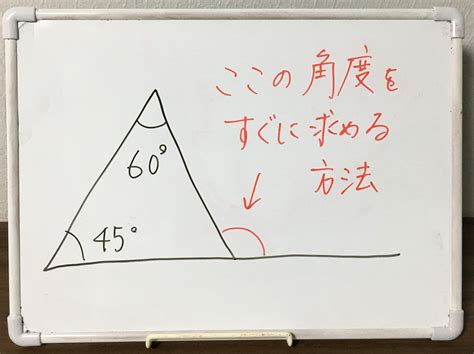 ここの角度を
すぐに求める
方法
60°
45°